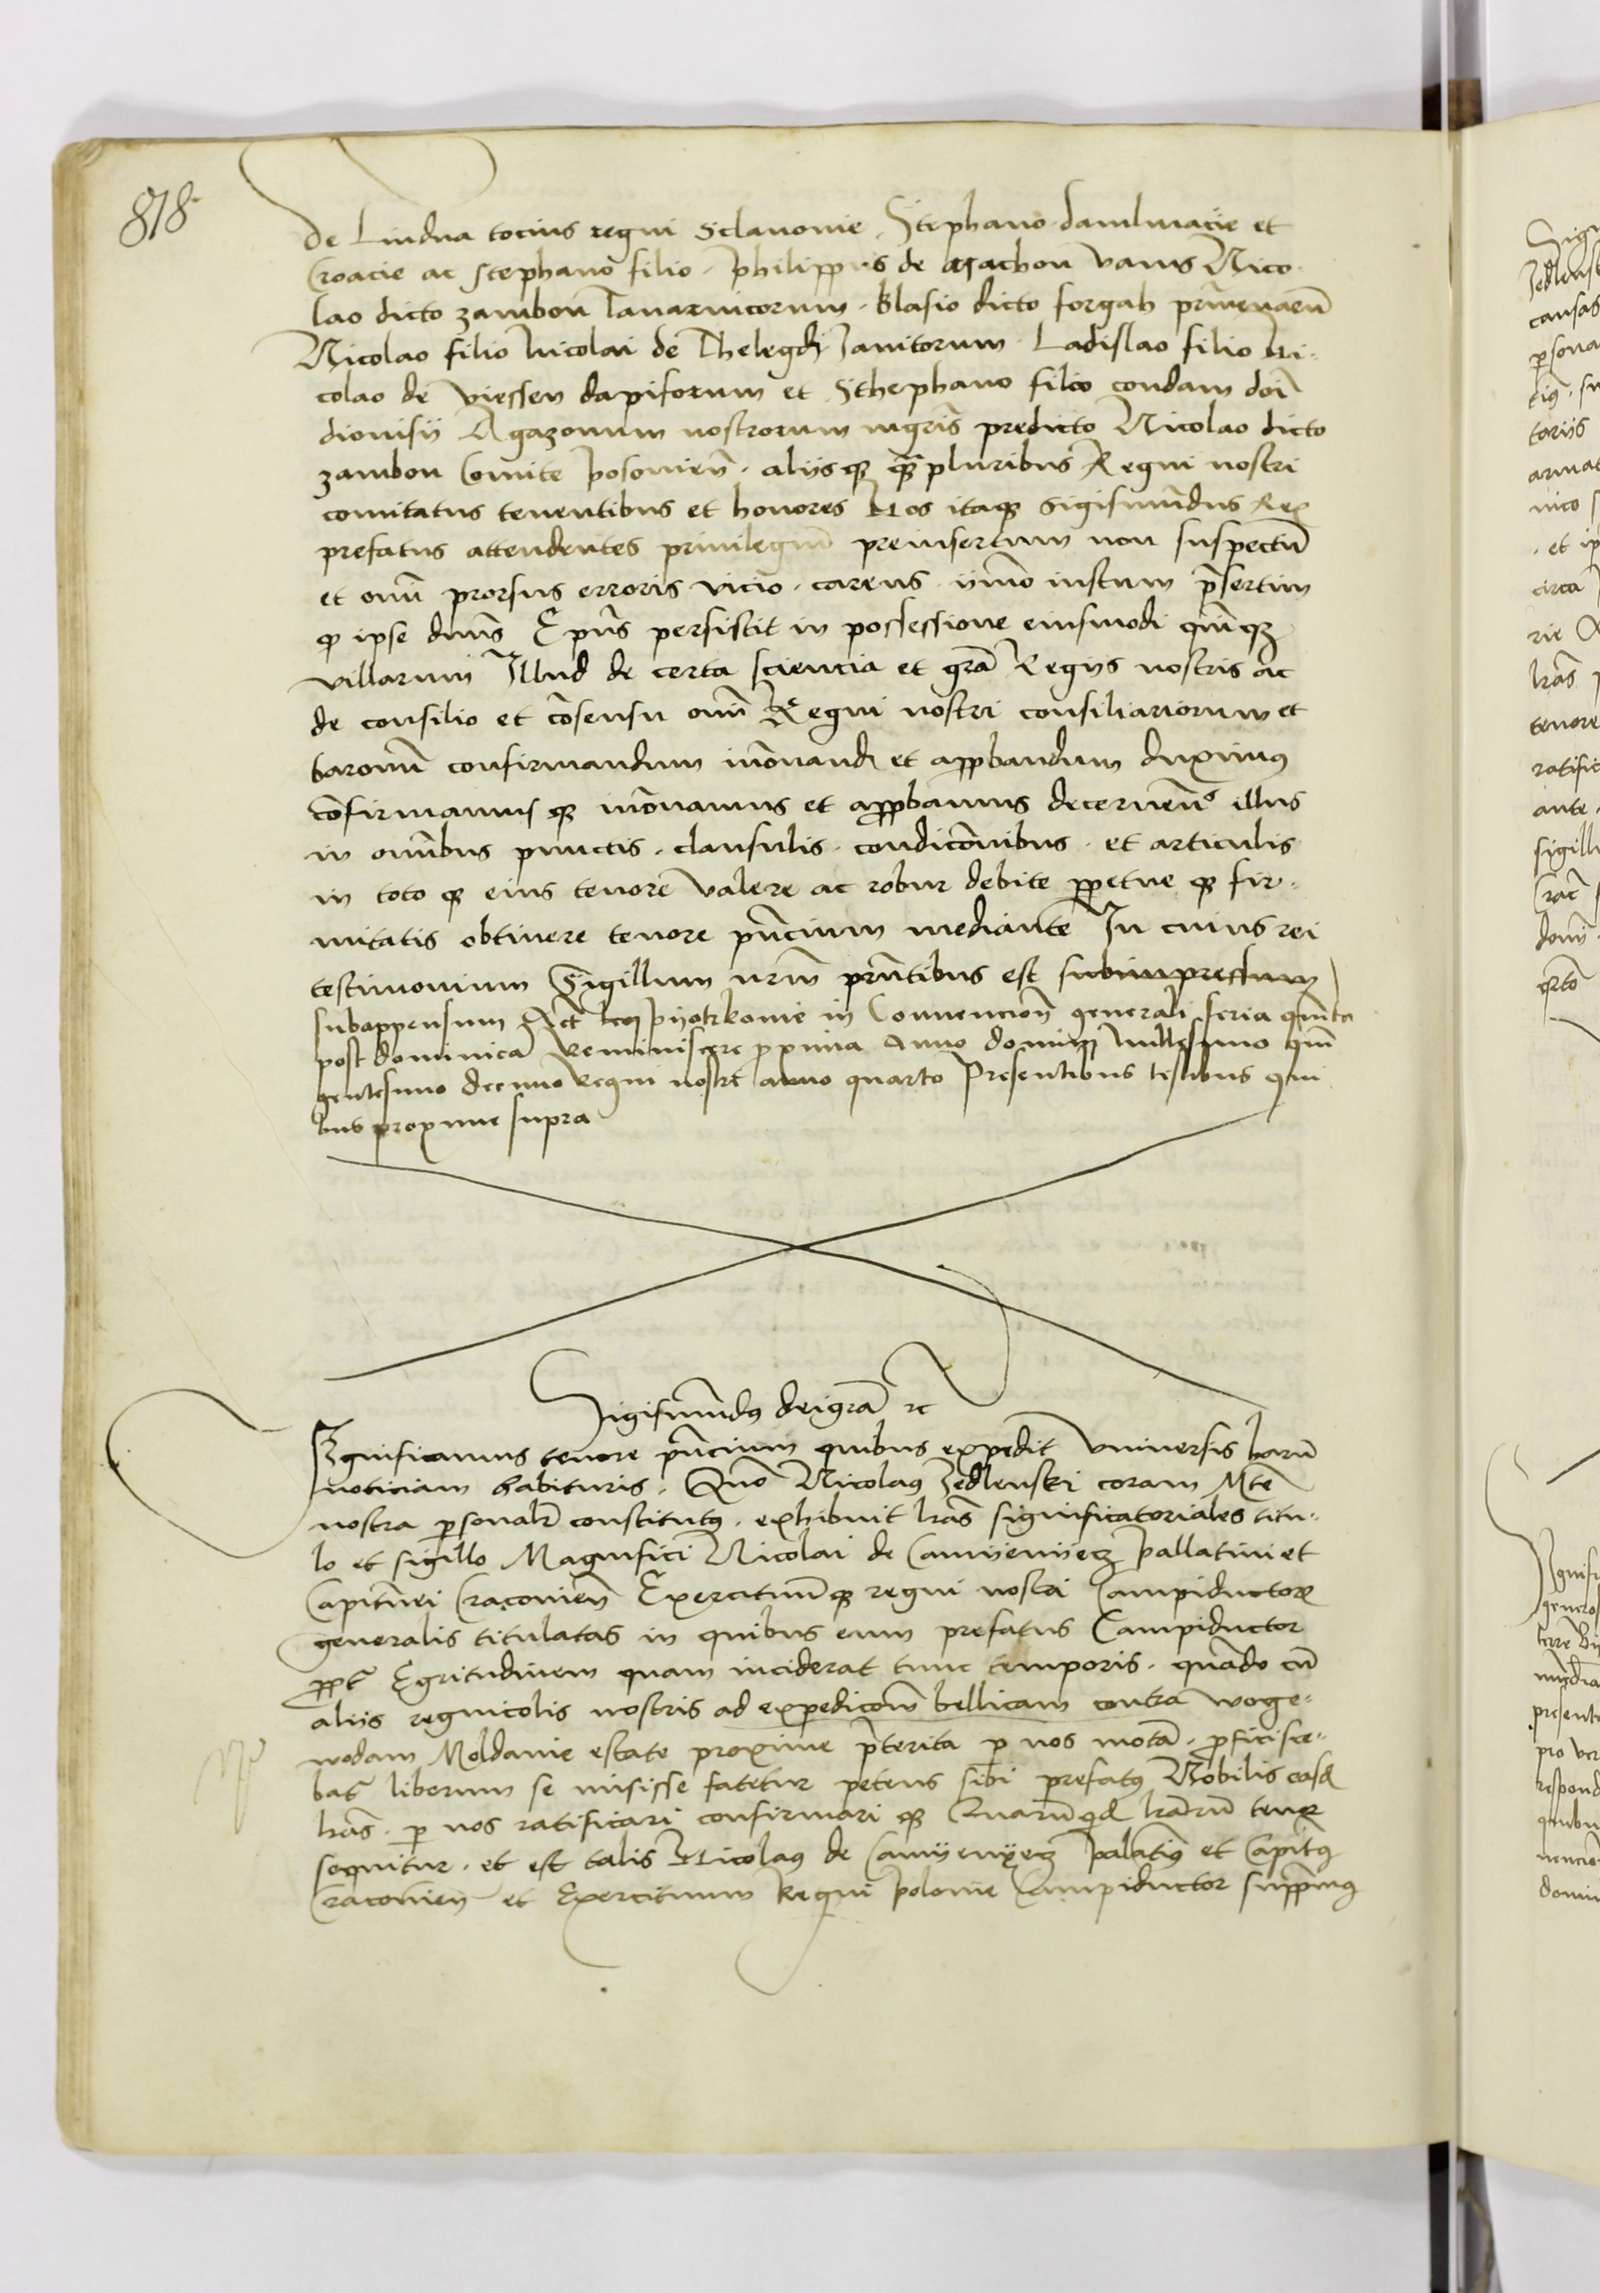 818
de Lindna tocius regni Sclavonie, Stephano damlmacie et
Croacie ac stephano filio Philippus de Machon vanis Nico
lao dicto zambon Tavarnicorum Blasio dicto forgah
Nicolao filio Nicolai de Thelegdi Janitorum Ladislao filio Ni-
colao de viessen dapiforum et Sthephano filio condam doi
dionisii Agazonum nostrorum mgris predicto Nicolao dicto
zambon Comite Posonien aliisq3 q3pluribus Regni nostri
comitatus tenentibus et honores Nos itaq3 Sigismundus Rex
prefatus attendentes privilegium preinsertum non suspectu
et omi prorsus erroris vicio carens ymo iustum presertim
q ipse dnus Epus persistit in possessione eiusmodi quinq3
villarum Illud de certa sciencia et gra Regiis nostris ac
de consilio et cosensu omi Regni nostri consiliariorum et
baronu confirmandum innovand et approbandum duximus
cofirmamus q3 innovamus et approbamus decernen illus
in omibus punctis clausulis condicionibus et articulis
in toto q3 eius tenore valere ac robur debite perpetue q3 fir-
mitatis obtinere tenore pncium mediante In cuius rei
testimonium Sigillum nrm prntibus est subimpressum
subappensum Act Pyotrkovie in Convencion generali feria quinta
post dominica Reminiscere proxima Anno domini Millesimo quin
gentesimo decimo Regni nostri anno quarto Presentibus testibus qui
bus proxime supra
Sigismundus dei gra rc
Significamus tenore pncium quibus expedit Universis harum
noticiam habituris Quo Nicolaus Zedlenski coram Mte
nostra personalr constitutus exhibuit lras significatoriales titu-
lo et sigillo Magnifici Nicolai de Camyenyecz Pallatini et
Capitnei Cracovien Exercituumq3 regni nostri Campiductor
generalis titulatas in quibus eum prefatus Campiductor
ppt Egritudinem quam inciderat tunc temporis quado cu
aliis regnicolis nostris ad expedicom bellicam contra woye-
wodam Moldavie estate proxime preterita p nos mota proficisce-
bat liberum se misisse fatetur petens sibi prefatus Nobilis easd
lras p nos ratificari confirmari q3 Quaru qd lraru tenor
sequitur et est talis Nicolaus de Camyenyecz Palatinus et Capitus
Cracovien et Exercituum Regni Polonie Campiductor suppremus